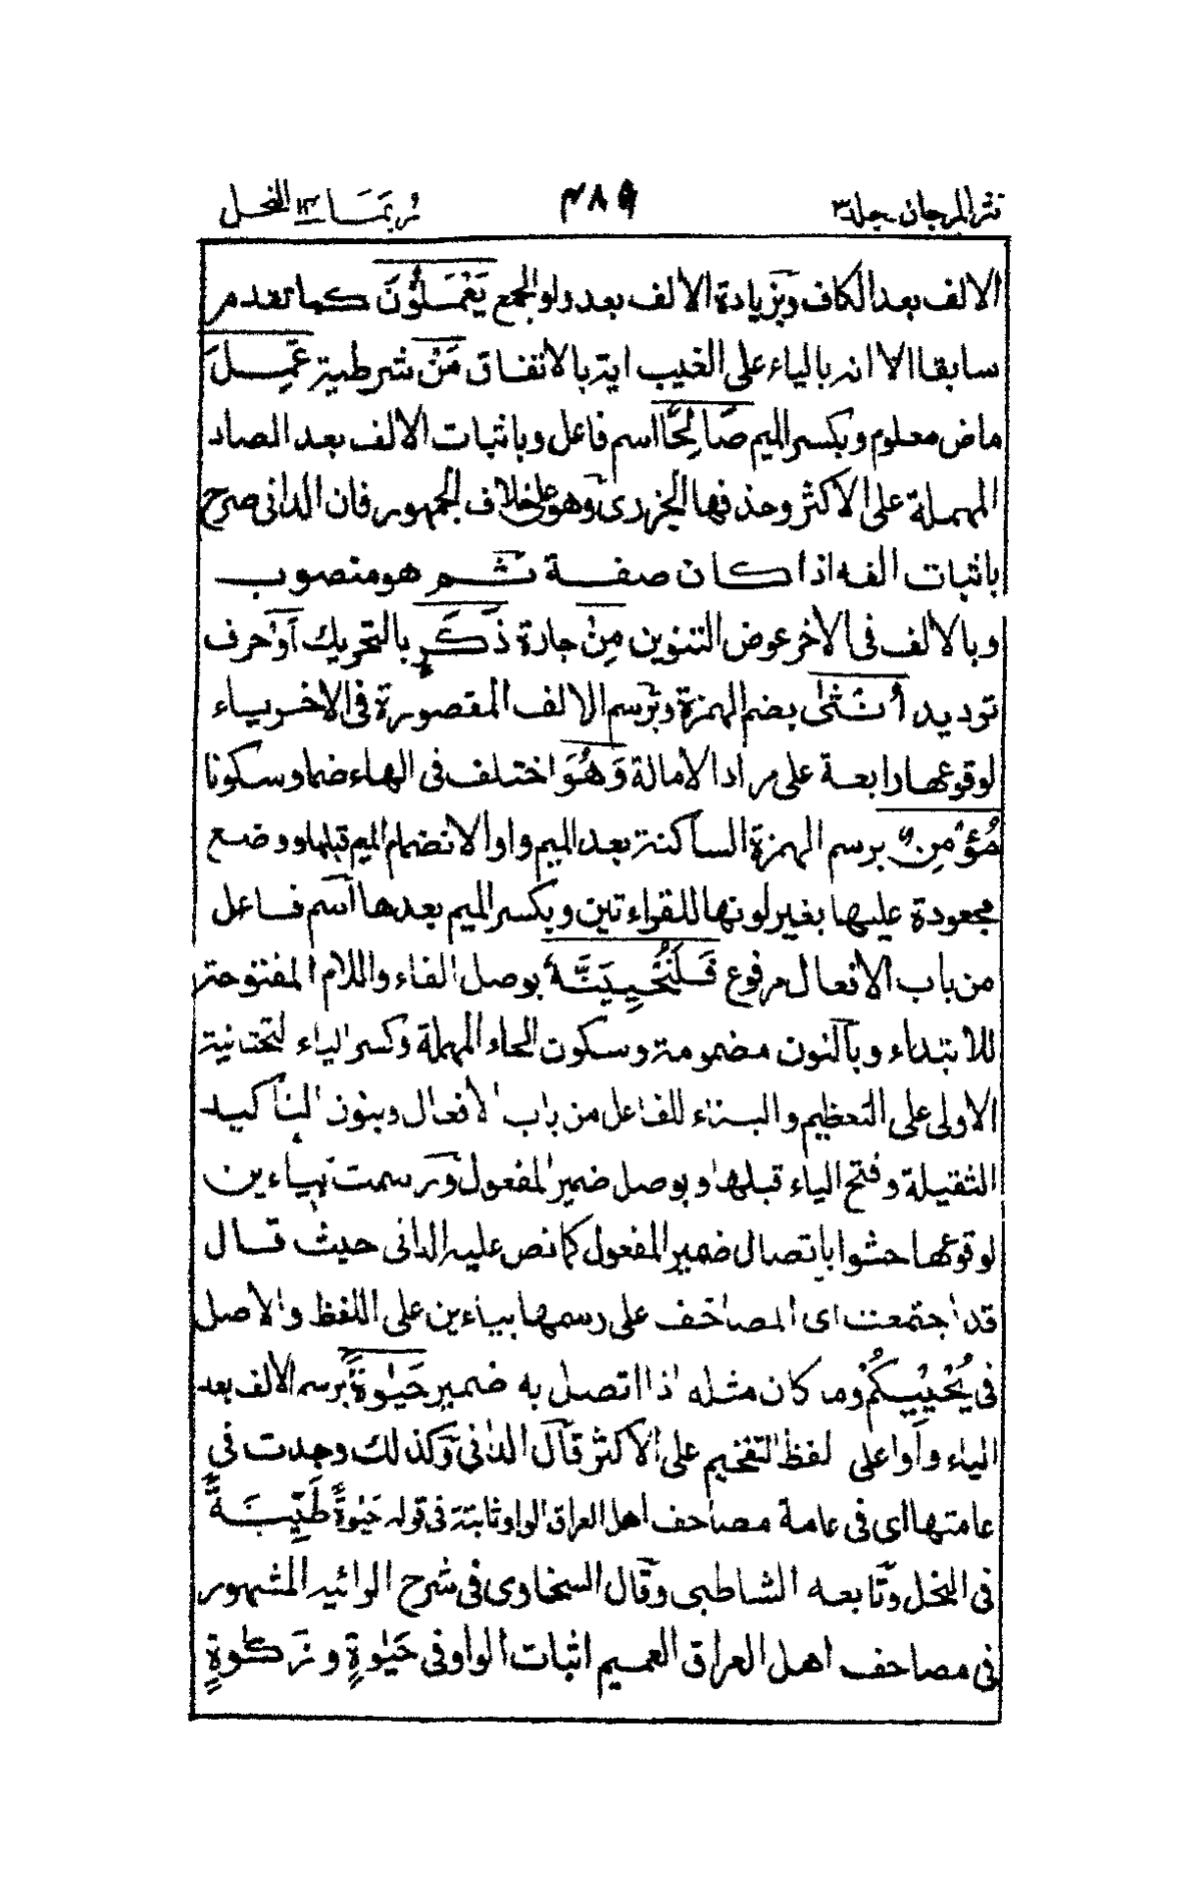 نثر المرجان جلد٣ ٤٨٩ ربما ١٤ النحل
الالف بعد الكاف وبزيادة الالف بعد واو الجمع يَعْمَلُوْنَ كما تقدم
سابقا الا انه بالياء على الغيب اية بالاتفاق مَنْ شرطية عَمِلَ
ماض معلوم وبكسر الميم صَالِحًا اسم فاعل وباثبات الالف بعد الصاد
المهملة على الاكثر وحذفها الجزرى وهو على خلاف الجمهور فان الدانى صرح
باثبات الفه اذا كان صفة ثم هو منصوب
وبالالف فى الاخر عوض التنوين مِنْ جارة ذَكَرٍ بالتحريك اَوْ حرف
ترديد اُنْثٰى بضم الهمزة وترسم الالف المقصورة فى الاخر بياء
لوقوعها رابعة على مراد الامالة وَهُوَ اختلف فى الهاء ضما وسكونا
مُؤْمِنٌ برسم الهمزة الساكنة بعد الميم واوا لانضمام الميم قبلها ووضع
مجعودة عليها بغير لونها للقراءتين وبكسر الميم بعدها اسم فاعل
من باب الافعال مرفوع فَلَنُحْيِيَنَّهٗ بوصل الفاء واللام المفتوحة
للابتداء وبالنون مضمومة وسكون الحاء المهملة وكسر الياء التحتانية
الاولى على التعظيم والبناء للفاعل من باب الافعال وبنون التاكيد
الثقيلة وفتح الياء قبلها وبوصل ضمير المفعول ورسمت بياءين
لوقوعها حشوا باتصال ضمير المفعول كما نص عليه الدانى حيث قال
قد اجتمعت اى المصاحف على رسمها بياءين على اللفظ والاصل
فى يُحْيِيْكُمْ وما كان مثله اذا اتصل به ضمير حَيٰوةً برسم الالف بعد
الياء واوا على لفظ التفخيم على الاكثر قال الدانى وكذلك وجدت فى
عامتها اى فى عامة مصاحف اهل العراق الواو ثابتة فى قوله حَيٰوةً طَيِّبَةً
فى النحل وتابعه الشاطبى وقال السخاوى فى شرح الرائية المشهور
فى مصاحف اهل العراق العميم اثبات الواو فى حَيٰوةٍ و زَكٰوةٍ